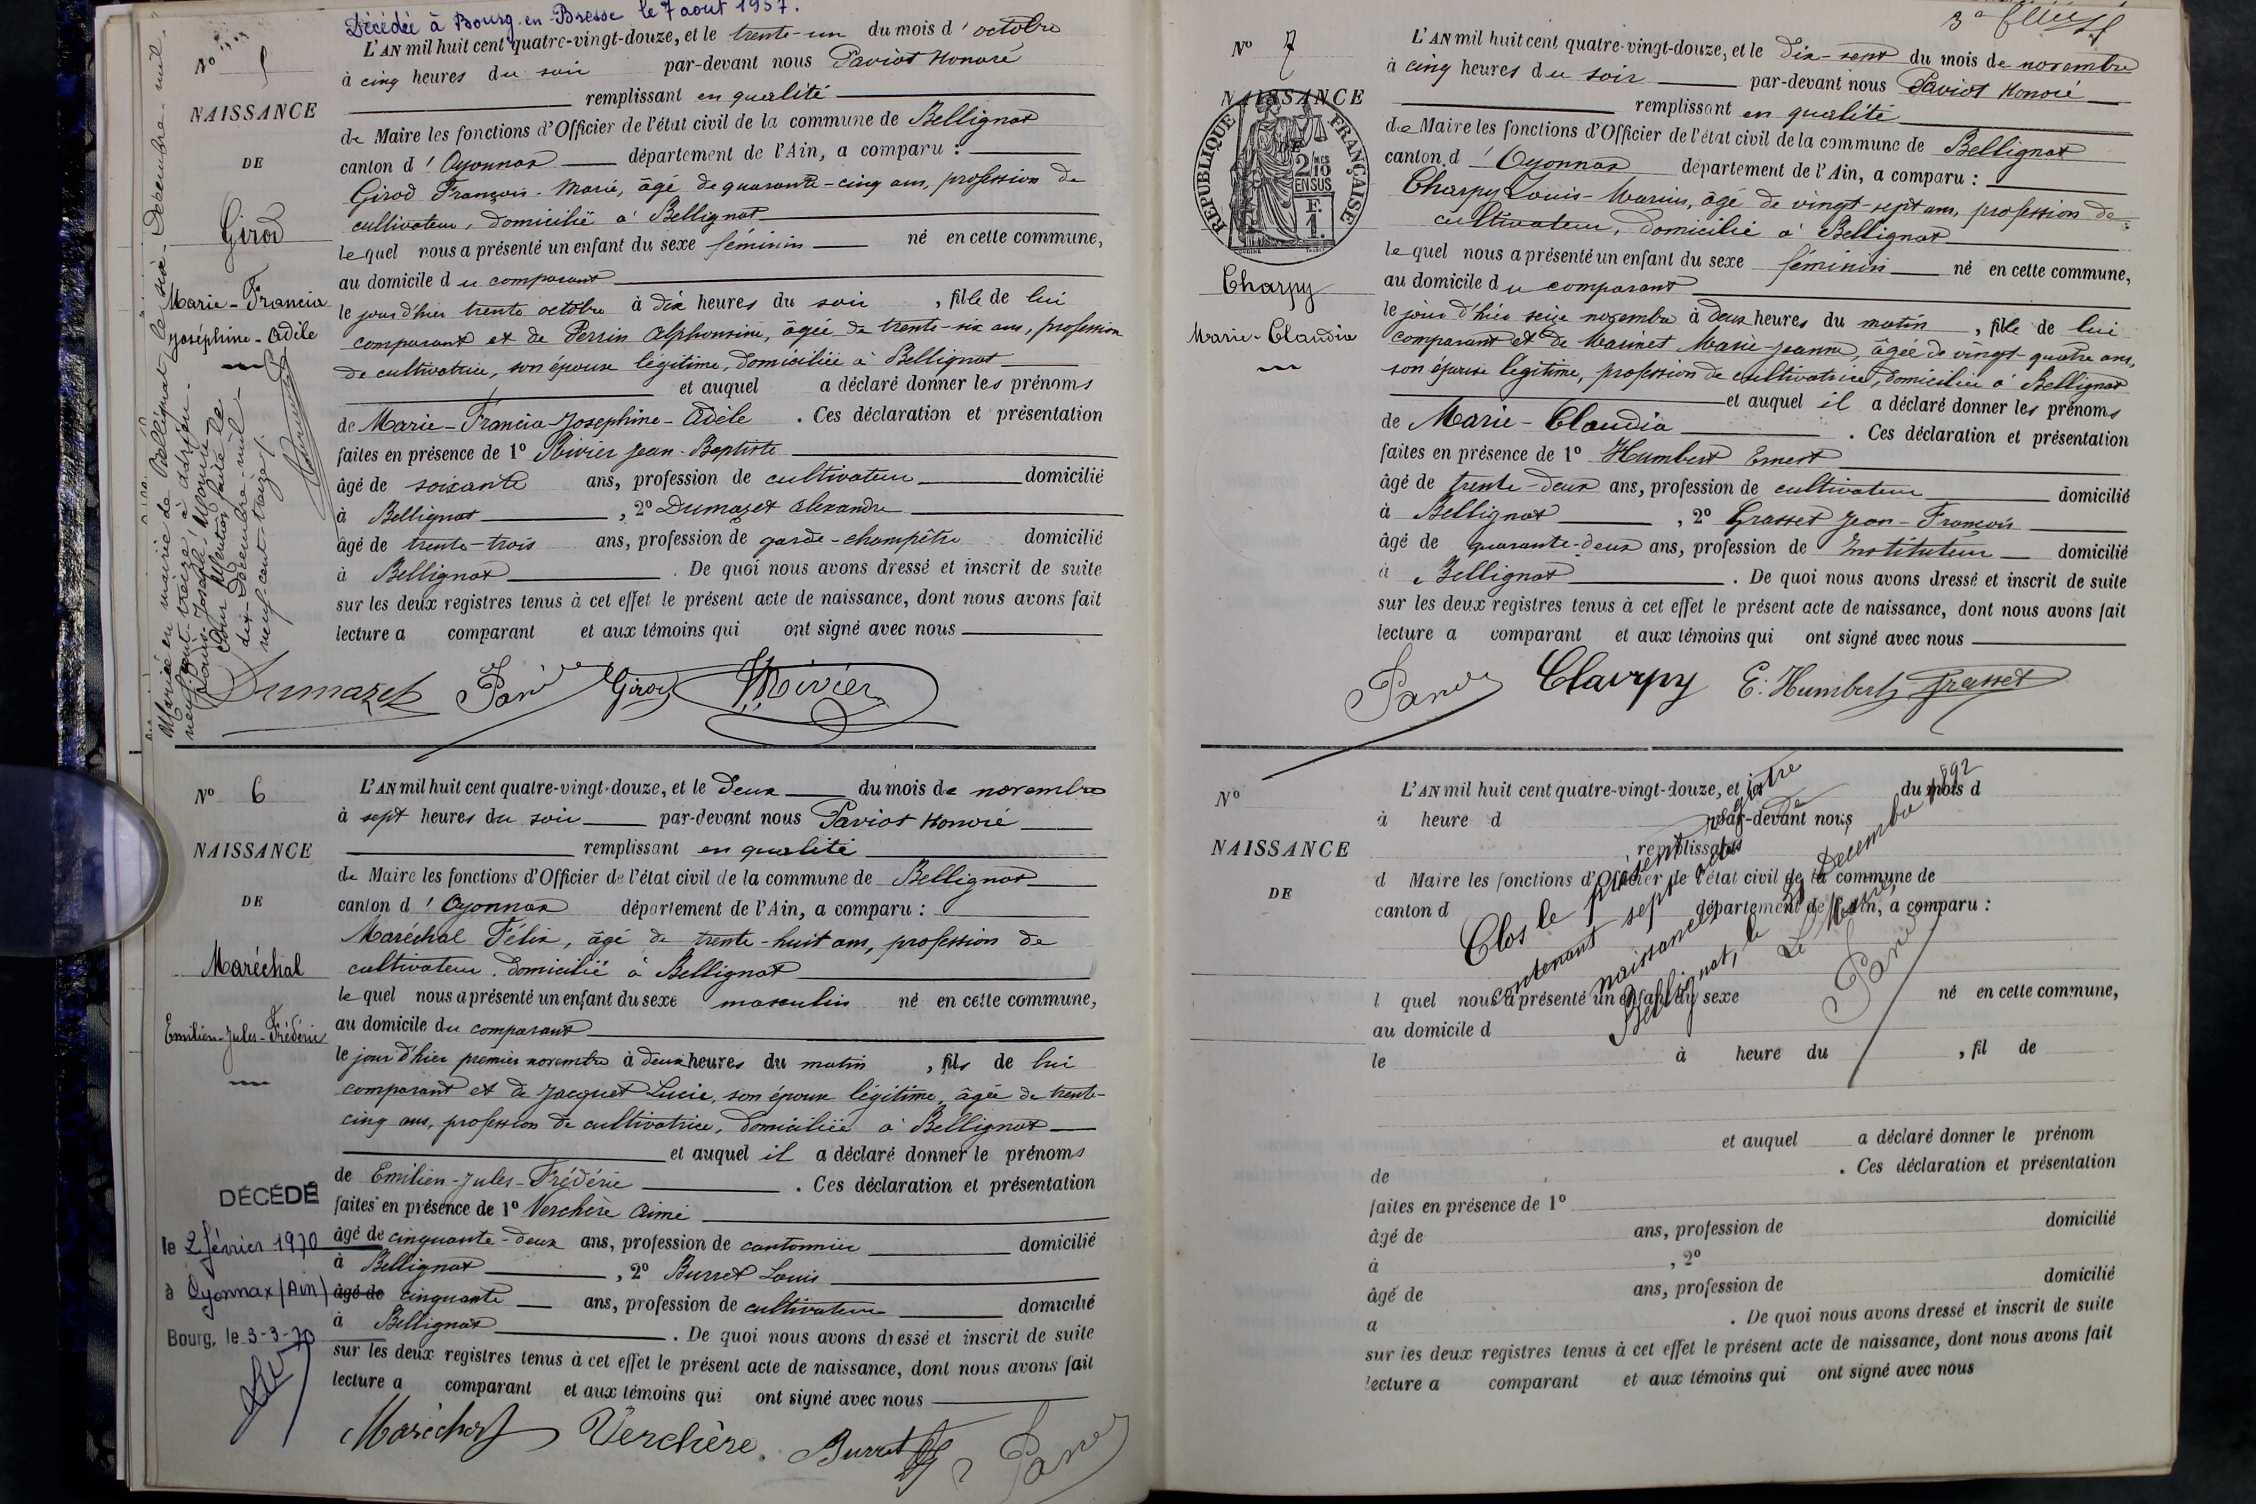 Décédée à Bourg-en-Bresse le 7 aout 1957.
N° 5
NAISSANCE
DE
Girod
Marie-Francia
Joséphine-Adèle
Mariée en mairie de Bellignat le six Décembre mil
neuf cent treize à
Louis-Joseph-
Pour Mention faite le
dix Décembre mil
neuf cent treize
L'AN mil huit cent quatre-vingt-douze, et le trente-un du mois d'octobre
à cinq heures du soir par-devant nous Paviot Honoré
remplissant en qualité
de Maire les fonctions d'Officier de l'état civil de la commune de Bellignat
canton d'Oyonnax département de l'Ain, a comparu :
Girod François-Marie, âgé de quarante-cinq ans, profession de
cultivateur, domicilié à Bellignat
lequel nous a présenté un enfant du sexe féminin né en cette commune,
au domicile du comparant
le jour d'hier trente octobre à dix heures du soir, fille de lui
comparant et de Perrin Alphonsine, âgée de trente-six ans, profession
de cultivatrice, son épouse légitime, domiciliée à Bellignat
et auquel a déclaré donner les prénoms
de Marie-Francia-Joséphine-Adèle. Ces déclaration et présentation
faites en présence de 1° Rivier Jean-Baptiste
âgé de soixante ans, profession de cultivateur domicilié
à Bellignat, 2° Dumazet Alexandre
âgé de trente-trois ans, profession de garde-champêtre domicilié
à Bellignat. De quoi nous avons dressé et inscrit de suite
sur les deux registres tenus à cet effet le présent acte de naissance, dont nous avons fait
lecture a comparant et aux témoins qui ont signé avec nous
Dumazet Paviot Girod Rivier
N° 6
NAISSANCE
DE
Maréchal
Emilien-Jules-Frédéric
DÉCÉDÉ
le 2 février 1970
à Oyonnax (Ain)
Bourg, le 3-3-70
L'AN mil huit cent quatre-vingt-douze, et le deux du mois de novembre
à sept heures du soir par-devant nous Paviot Honoré
remplissant en qualité
de Maire les fonctions d'Officier de l'état civil de la commune de Bellignat
canton d'Oyonnax département de l'Ain, a comparu :
Maréchal Félix, âgé de trente-huit ans, profession de
cultivateur, domicilié à Bellignat
lequel nous a présenté un enfant du sexe masculin né en cette commune,
au domicile du comparant
le jour d'hier premier novembre à deux heures du matin, fils de lui
comparant et de Jacquet Lucie, son épouse légitime, âgée de trente-
cinq ans, profession de cultivatrice, domiciliée à Bellignat
et auquel il a déclaré donner le prénoms
de Emilien-Jules-Frédéric. Ces déclaration et présentation
faites en présence de 1° Verchère Aimé
âgé de cinquante-deux ans, profession de cantonnier domicilié
à Bellignat, 2° Burret Louis
âgé de cinquante ans, profession de cultivateur domicilié
à Bellignat. De quoi nous avons dressé et inscrit de suite
sur les deux registres tenus à cet effet le présent acte de naissance, dont nous avons fait
lecture a comparant et aux témoins qui ont signé avec nous
Maréchal Verchère Burret Paviot
3e feuillet
N° 7
NAISSANCE
RÉPUBLIQUE FRANÇAISE
2/10 MES
EN SUS
F.
1.
Charpy
Marie-Claudia
L'AN mil huit cent quatre-vingt-douze, et le dix-sept du mois de novembre
à cinq heures du soir par-devant nous Paviot Honoré
remplissant en qualité
de Maire les fonctions d'Officier de l'état civil de la commune de Bellignat
canton d'Oyonnax département de l'Ain, a comparu :
Charpy Louis-Marius, âgé de vingt-sept ans, profession de
cultivateur, domicilié à Bellignat
lequel nous a présenté un enfant du sexe féminin né en cette commune,
au domicile du comparant
le jour d'hier seize novembre à deux heures du matin, fille de lui
comparant et de Marinet Marie-Jeanne, âgée de vingt-quatre ans,
son épouse légitime, profession de cultivatrice, domiciliée à Bellignat
et auquel il a déclaré donner les prénoms
de Marie-Claudia. Ces déclaration et présentation
faites en présence de 1° Humbert Ernest
âgé de trente-deux ans, profession de cultivateur domicilié
à Bellignat, 2° Grasset Jean-François
âgé de quarante-deux ans, profession de Instituteur domicilié
à Bellignat. De quoi nous avons dressé et inscrit de suite
sur les deux registres tenus à cet effet le présent acte de naissance, dont nous avons fait
lecture a comparant et aux témoins qui ont signé avec nous
Paviot Charpy E. Humbert Grasset
N°
NAISSANCE
DE
L'AN mil huit cent quatre-vingt-douze, et le du mois d
à heure d par-devant nous
remplissant
d Maire les fonctions d'Officier de l'état civil de la commune de
canton d département de l'Ain, a comparu :
l quel nous a présenté un enfant du sexe né en cette commune,
au domicile d
le à heure du , fil de
et auquel a déclaré donner le prénom
de . Ces déclaration et présentation
faites en présence de 1°
âgé de ans, profession de domicilié
à , 2°
âgé de ans, profession de domicilié
à . De quoi nous avons dressé et inscrit de suite
sur les deux registres tenus à cet effet le présent acte de naissance, dont nous avons fait
lecture a comparant et aux témoins qui ont signé avec nous
Clos le présent registre
contenant sept actes de
naissances
Bellignat, le 31 Décembre 1892
Le Maire,
Paviot